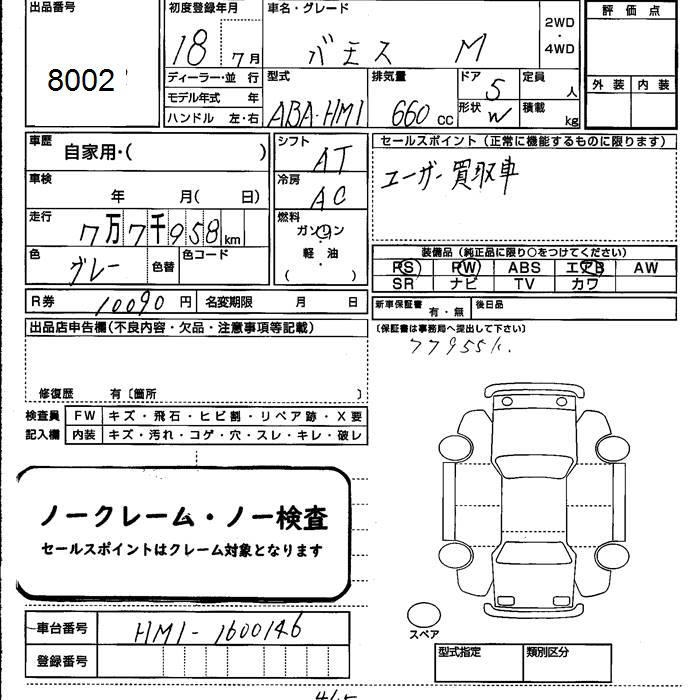 出品番号 初度登録年月 車名・グレード 評価点
8002 18 7月 バモス M 2WD・4WD
外装 内装
ディーラー・並 行 型式 排気量 ドア 定員
モデル年式 年 ABA-HM1 660 cc 5 人
ハンドル 左・右 形状 W 積載 kg
車歴 自家用・( ) シフト AT
セールスポイント(正常に機能するものに限ります)
ユーザー買取車
車検 年 月( 日) 冷房 AC
走行 7万7千958km 燃料 ガソリン・軽・油 ( )
色 グレー 色替 色コード
装備品(純正品に限り○をつけてください)
PS PW ABS エアB AW
SR ナビ TV カワ
R券 10090円 名変期限 月 日
新車保証書 有・無 後日品
(保証書は事務局へ提出して下さい)
出品店申告欄(不良内容・欠品・注意事項等記載)
77955K.
修復歴 有〔箇所 〕
検査員 FW キズ・飛石・ヒビ割・リペア跡・X要
記入欄 内装 キズ・汚れ・コゲ・穴・スレ・キレ・破レ
ノークレーム・ノー検査
セールスポイントはクレーム対象となります
車台番号 HM1-1600146
登録番号
スペア
型式指定 類別区分